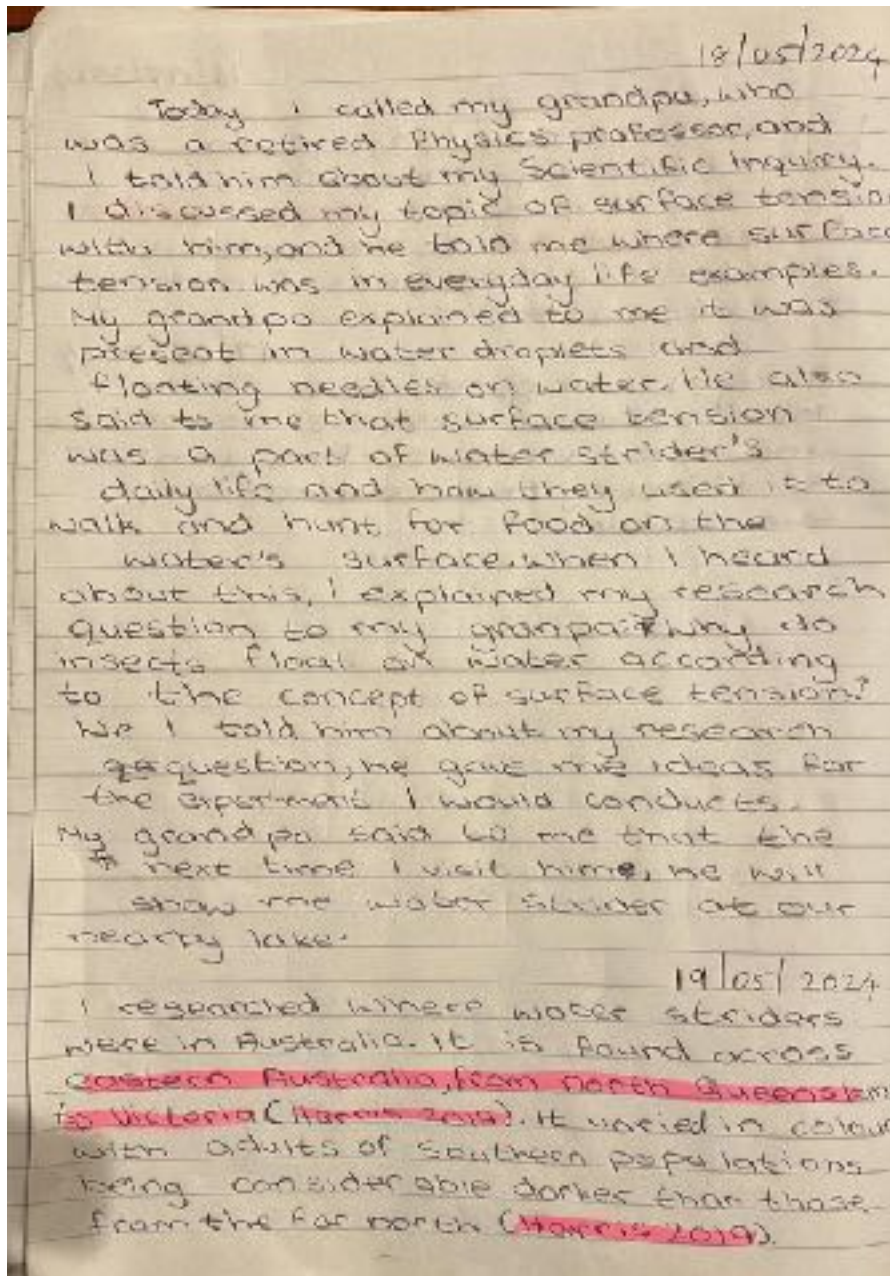 18/05/2024
Today I called my grandpa, who
was a retired Physics professor, and
I told him about my Scientific Inquiry.
I discussed my topic of surface tensio
with him, and he told me where surfac
tension was in everyday life examples.
My grandpa explained to me it was
present in water droplets and
floating needles on water. He also
said to me that surface tension
was a part of water strider's
daily life and how they used it to
walk and hunt for food on the
water's surface. When I heard
about this, I explained my research
question to my granpa: why do
insects float on water according
to the concept of surface tension?
We I told him about my research
question, he gave me ideas for
the experiment I would conducts.
My grandpa said to me that the
next time I visit him, he will
show me water strider at our
nearby lake.
19/05/2024
I researched where water striders
were in Australia. It is found across
eastern Australia, from north Queenslan
to Victoria (Harris 2019). It varied in colour
with adults of southern populations
being considerable darker than those
from the far north (Harris 2019).